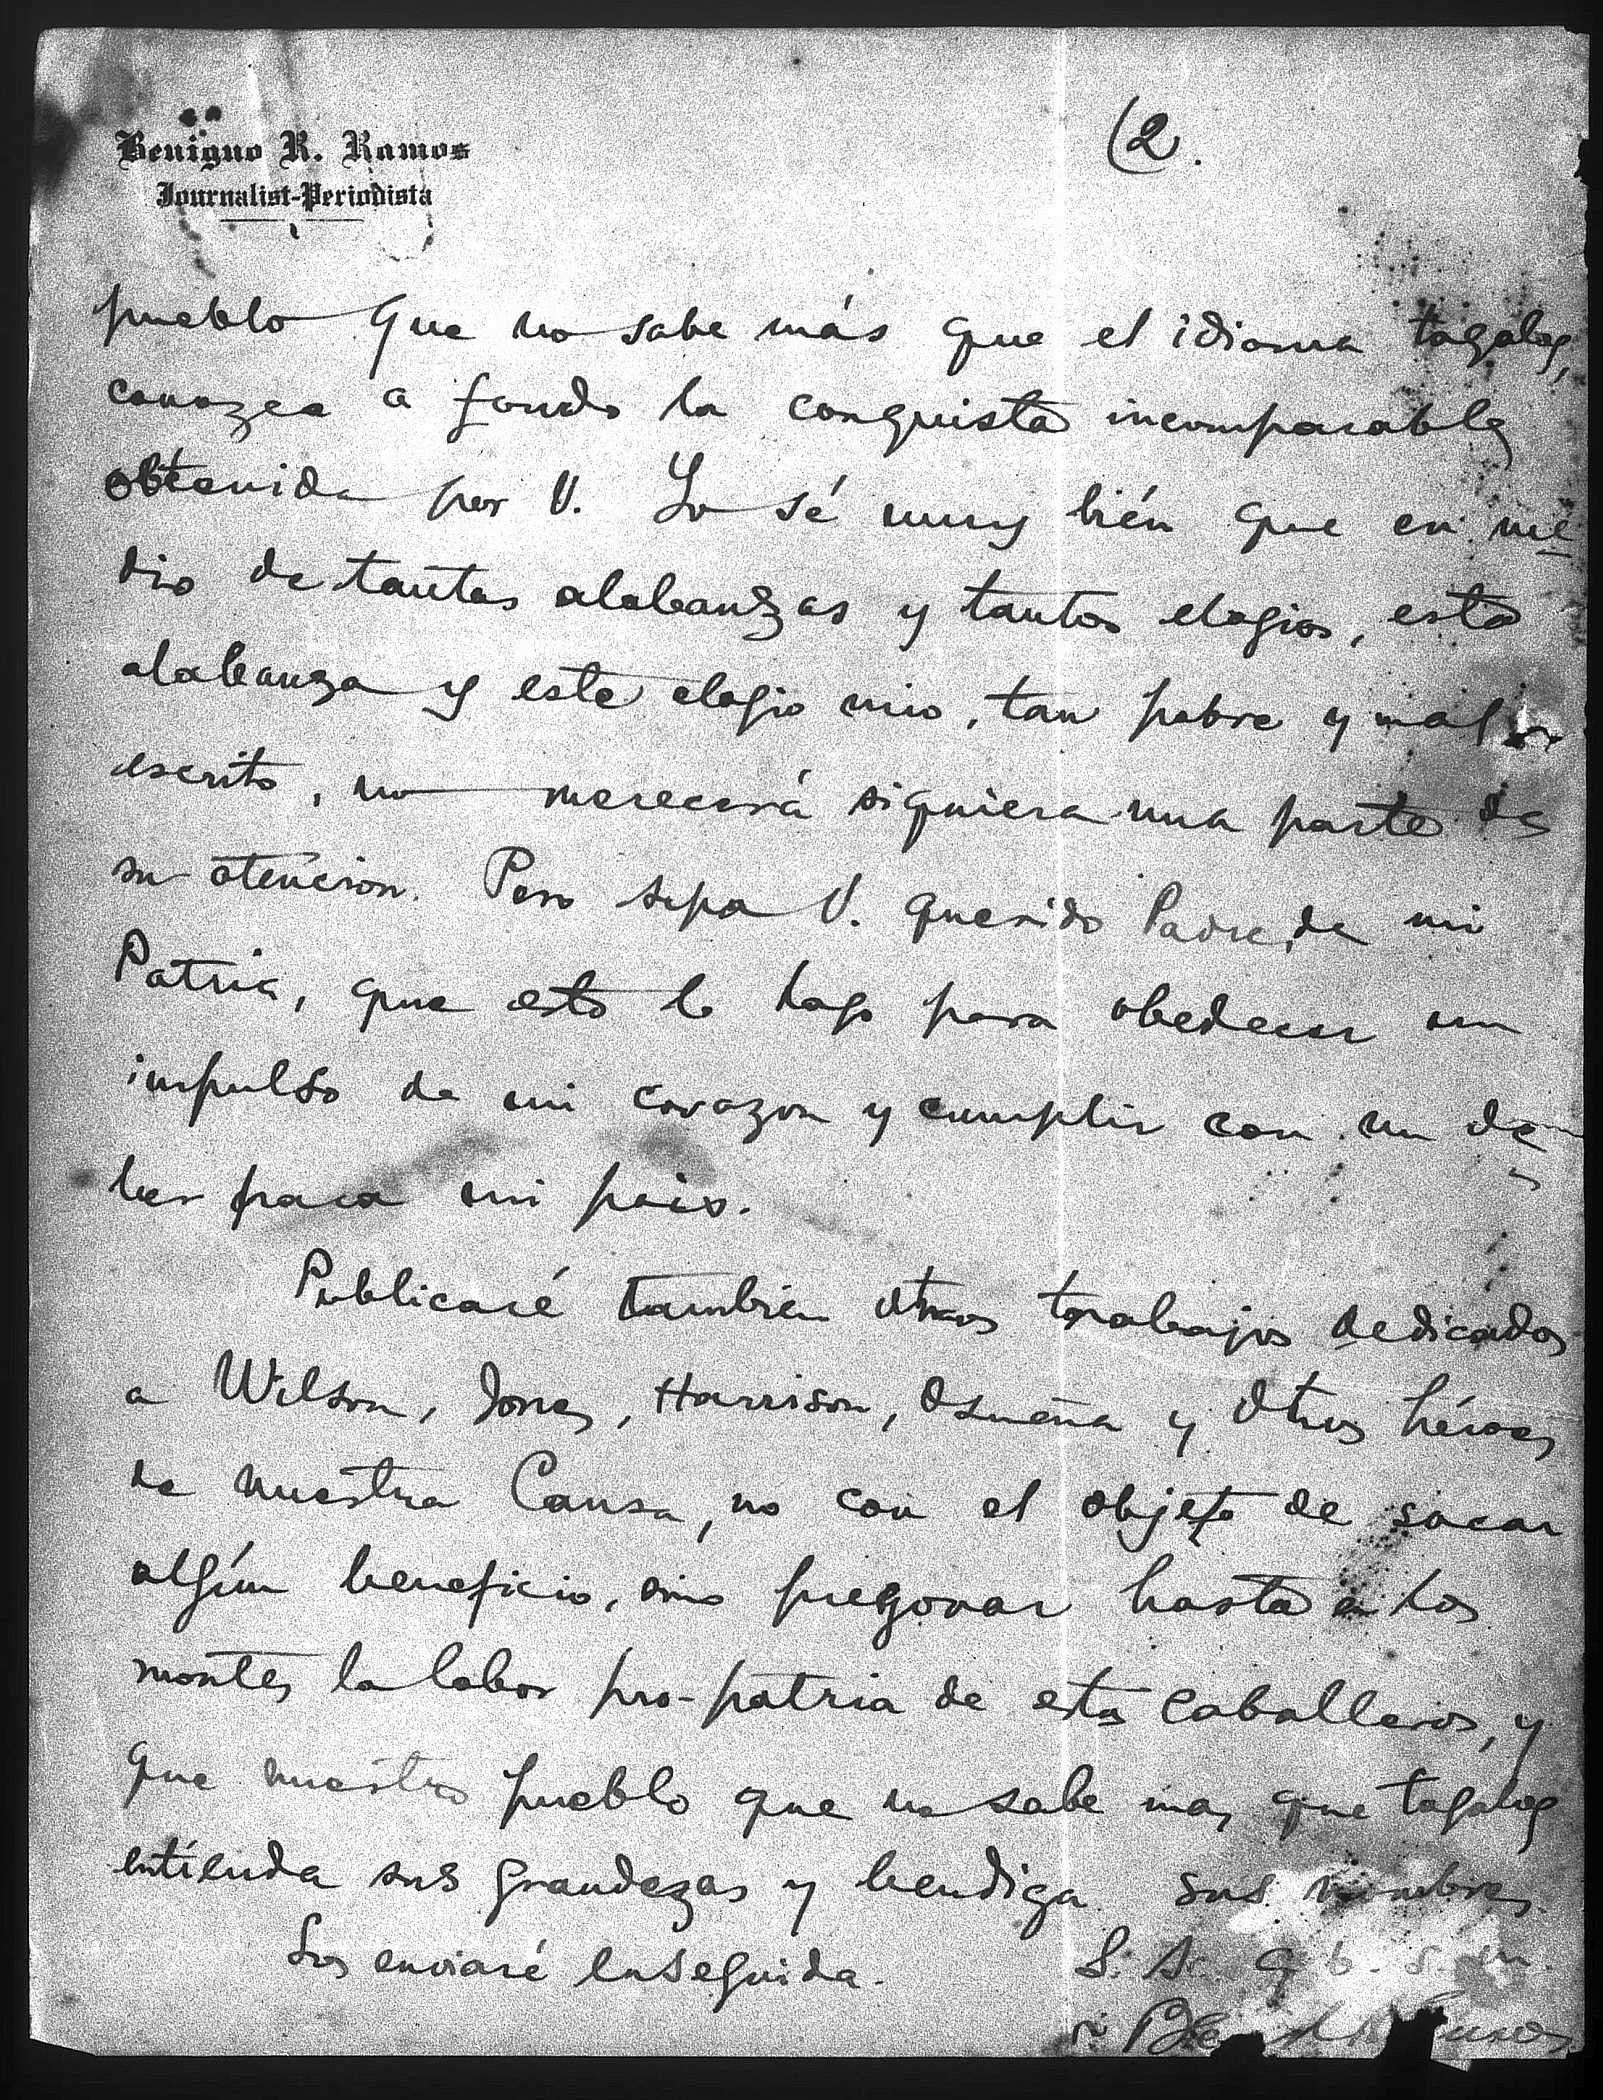 Benigno R. Ramos
Journalist-Periodista
(2.
pueblo que no sabe más que el idioma tagalog,
conozca a fondo la conquista incomparable
obtenida por V. Yo sé muy bién que en me
dio de tantas alabanzas y tantos elogios, esta
alabanza y este elogio mio, tan pobre y mal
escrito, no merecerá siquiera una parte de
su atención. Pero sepa V. querido Padre, de mi
Patria, que esto lo hago para obedecer un
impulso de mi corazon y cumplir con un de-
ber para mi pais.
Publicaré tambien otros trabajos dedicados
a Wilson, Jones, Harrison, Osmeña y otros héroes
de nuestra Causa, no con el objeto de sacar
algún beneficio, sino pregonar hasta en los
montes la labor pro-patria de estos caballeros, y
que nuestro pueblo que no sabe mas que tagalog
entienda sus grandezas y bendiga sus nombres.
Los enviaré enseguida.
S. S. q. b. s. m.